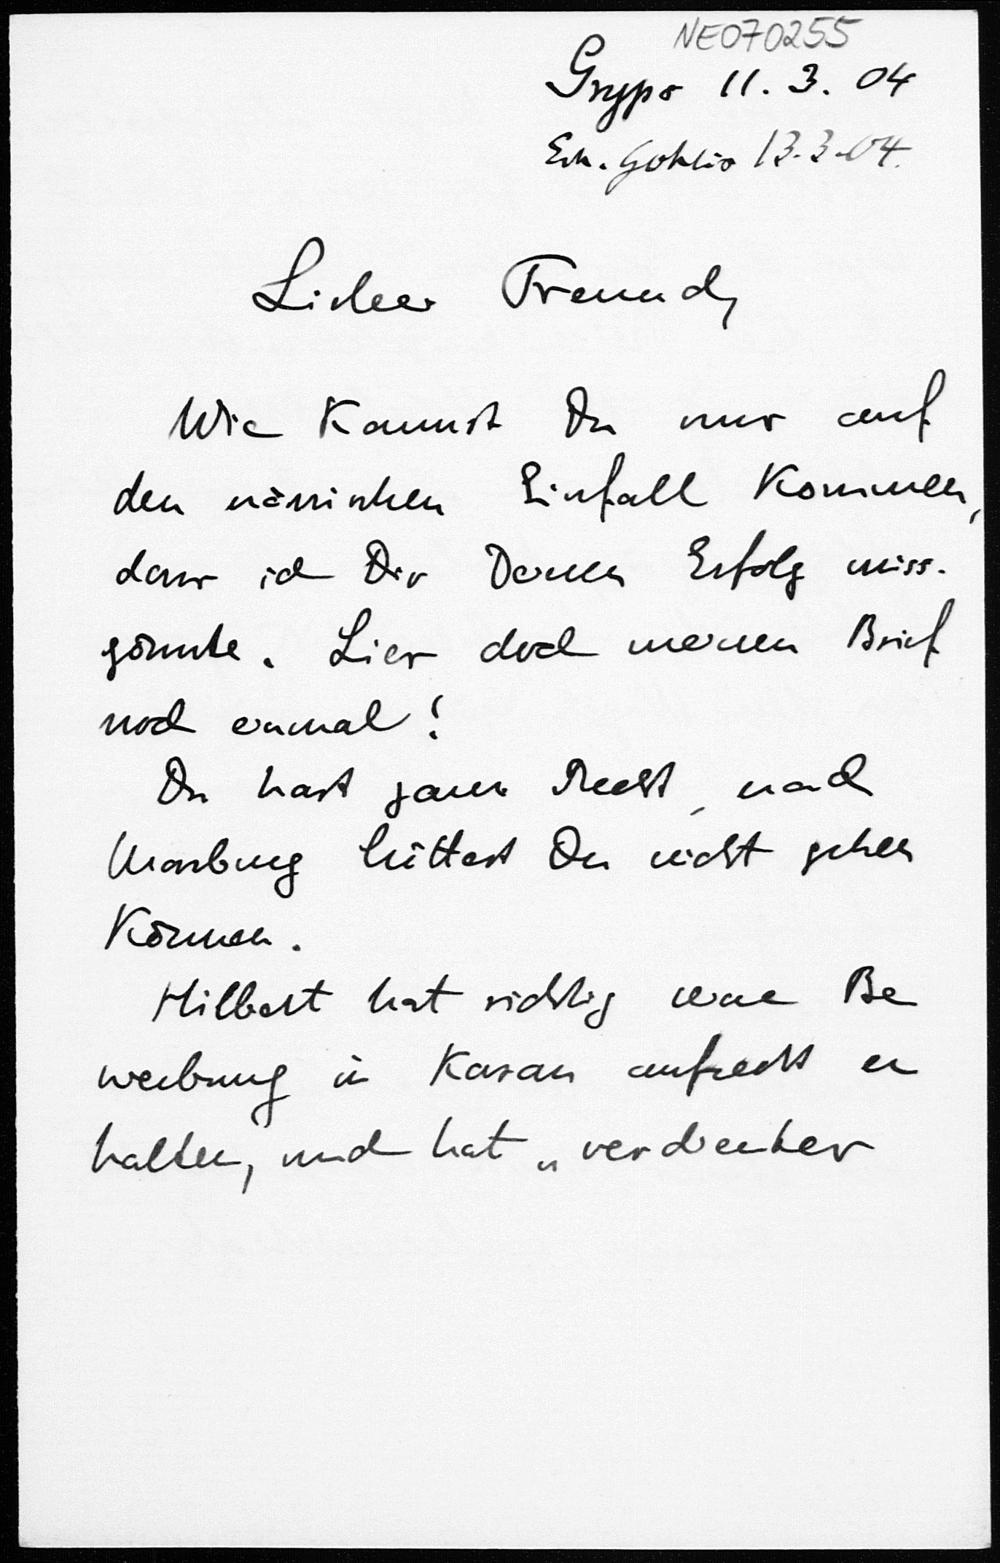 NE070255
Gryps 11. 3. 04
Erh. Gohlis 13.3.04.
Lieber Freund,
Wie kannst Du nur auf
den närrischen Einfall kommen,
dass ich Dir Deinen Erfolg miss-
gönnte. Lies doch meinen Brief
noch einmal!
Du hast ganz Recht, nach
Marburg hättest Du nicht gehen
können.
Hilbert hat richtig seine Be
werbung in Kasan aufrecht er
halten, und hat „verdienter